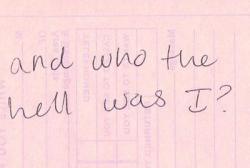 and who the
hell was I?